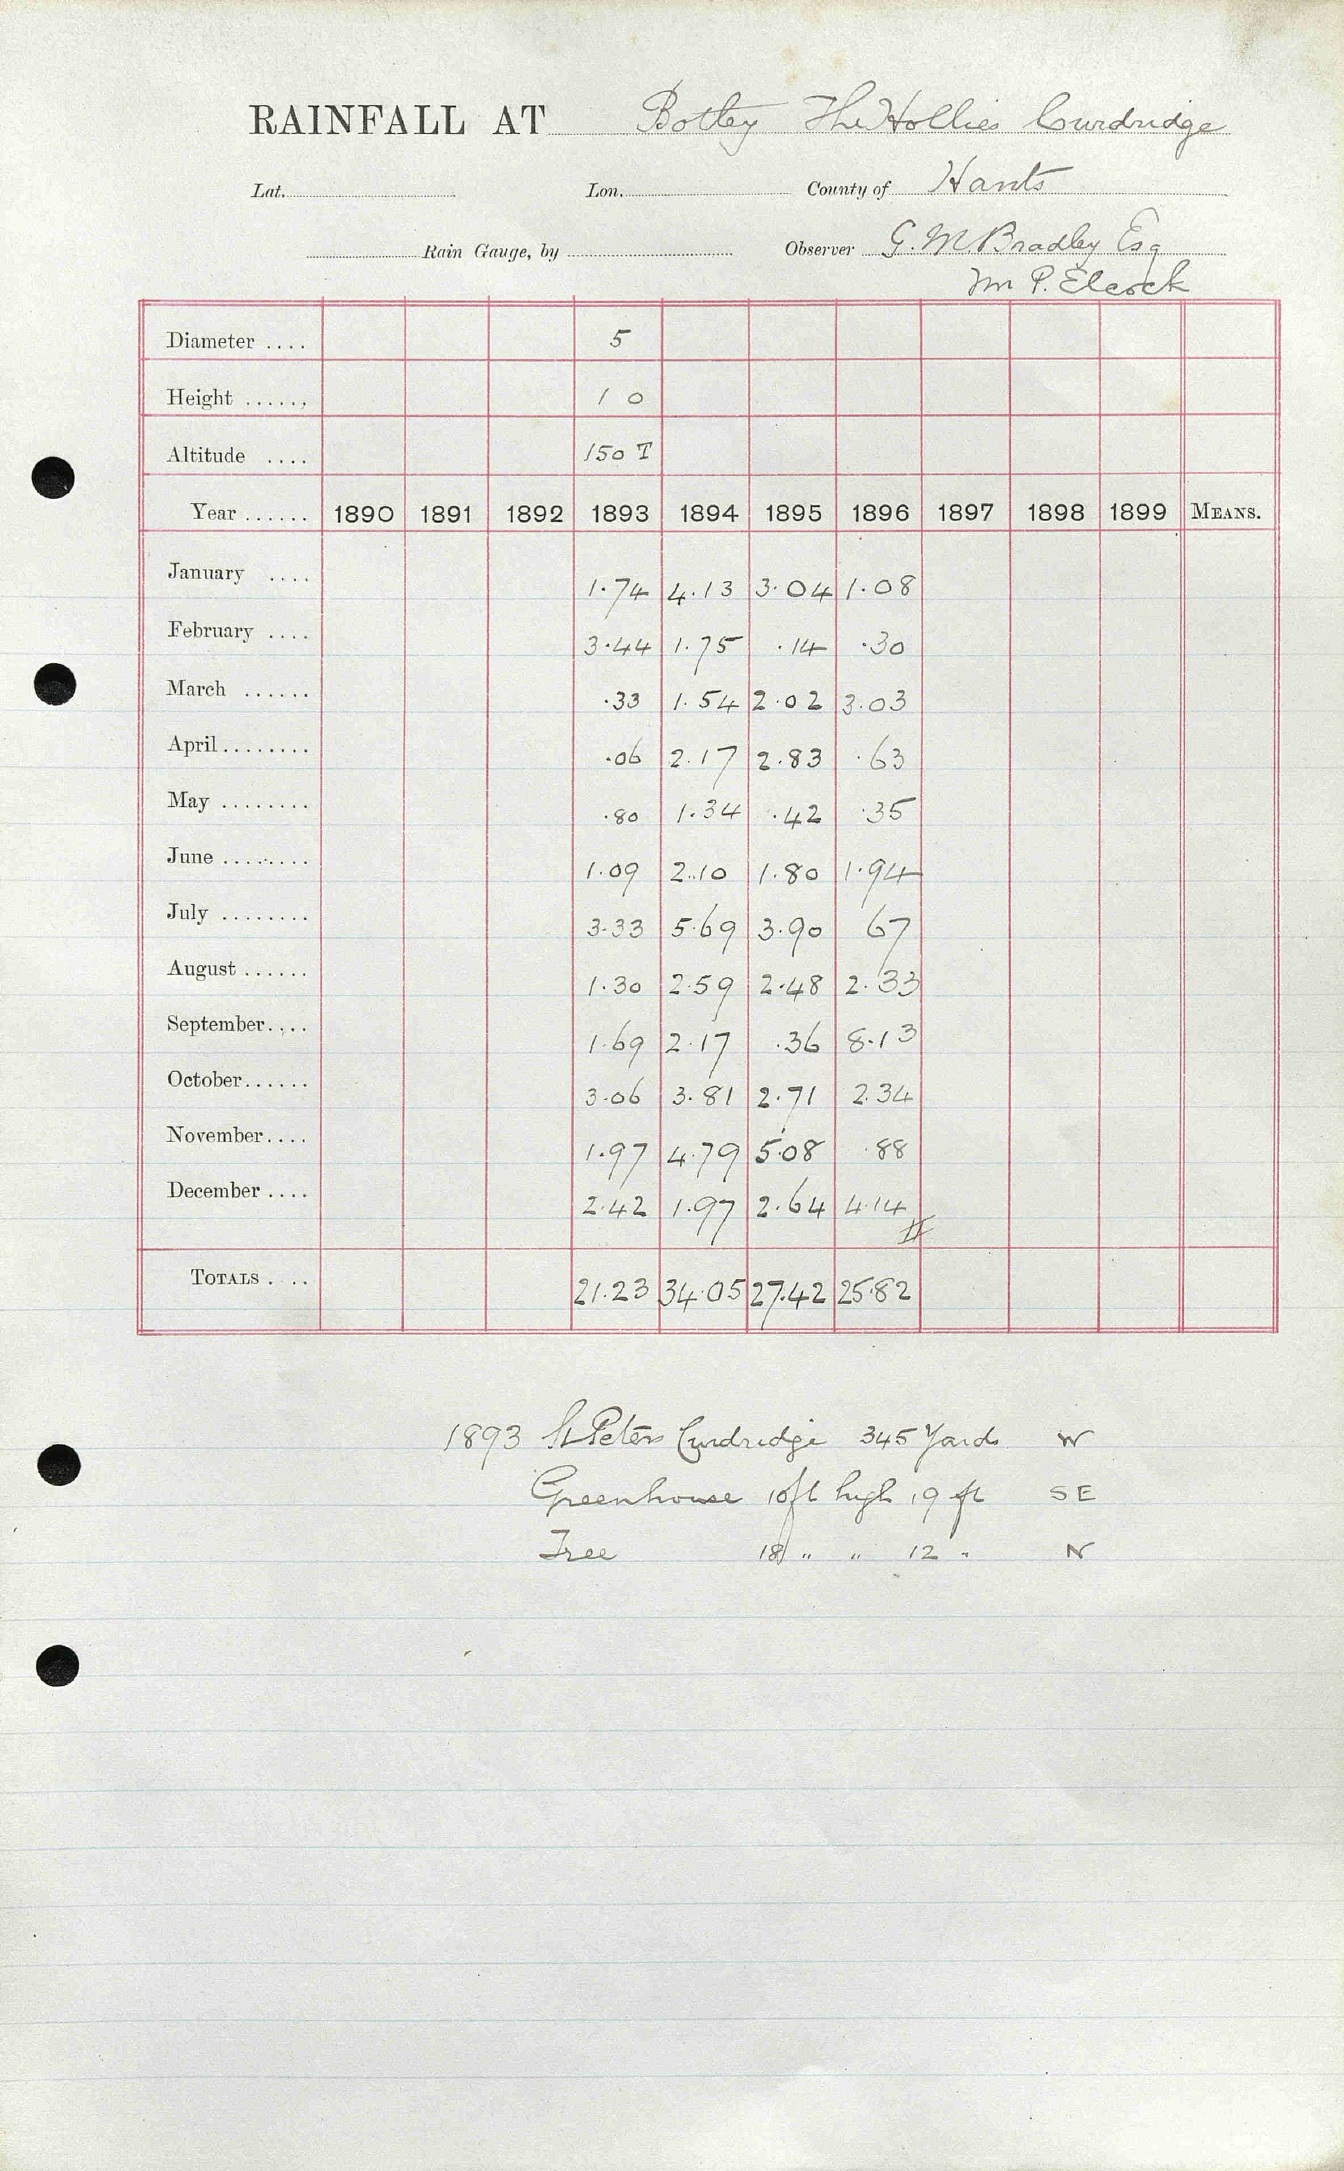 RAINFALL AT Botley The Hollies Curdridge
Lat. Lon. County of Hants
Rain Gauge, by Observer G. M. Bradley Esq
Mr P. Elcock
Diameter .... 5
Height ...... 1 0
Altitude .... 150 T
Year ...... 1890 1891 1892 1893 1894 1895 1896 1897 1898 1899 MEANS.
January .... 1.74 4.13 3.04 1.08
February .... 3.44 1.75 .14 .30
March ...... .33 1.54 2.02 3.03
April ........ .06 2.17 2.83 .63
May ........ .80 1.34 .42 .35
June ........ 1.09 2.10 1.80 1.94
July ........ 3.33 5.69 3.90 67
August ...... 1.30 2.59 2.48 2.33
September.... 1.69 2.17 .36 8.13
October...... 3.06 3.81 2.71 2.34
November.... 1.97 4.79 5.08 .88
December .... 2.42 1.97 2.64 4.14
TOTALS . .. 21.23 34.05 27.42 25.82
1893 St Peters Curdridge 345 Yards W
Greenhouse 10ft high 19 ft SE
Tree 18 " " 12 " N